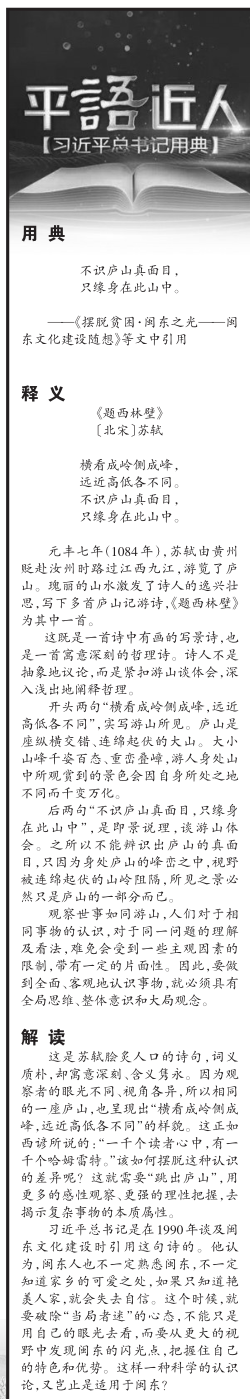 平語近人
【习近平总书记用典】
用 典
不识庐山真面目，
只缘身在此山中。
——《摆脱贫困·闽东之光——闽
东文化建设随想》等文中引用
释 义
《题西林壁》
〔北宋〕苏轼
横看成岭侧成峰，
远近高低各不同。
不识庐山真面目，
只缘身在此山中。
元丰七年（1084年），苏轼由黄州
贬赴汝州时路过江西九江，游览了庐
山。瑰丽的山水激发了诗人的逸兴壮
思，写下多首庐山记游诗，《题西林壁》
为其中一首。
这既是一首诗中有画的写景诗，也
是一首寓意深刻的哲理诗。诗人不是
抽象地议论，而是紧扣游山谈体会，深
入浅出地阐释哲理。
开头两句“横看成岭侧成峰，远近
高低各不同”，实写游山所见。庐山是
座纵横交错、连绵起伏的大山。大小
山峰千姿百态、重峦叠嶂，游人身处山
中所观赏到的景色会因自身所处之地
不同而千变万化。
后两句“不识庐山真面目，只缘身
在此山中”，是即景说理，谈游山体
会。之所以不能辨识出庐山的真面
目，只因为身处庐山的峰峦之中，视野
被连绵起伏的山岭阻隔，所见之景必
然只是庐山的一部分而已。
观察世事如同游山，人们对于相
同事物的认识，对于同一问题的理解
及看法，难免会受到一些主观因素的
限制，带有一定的片面性。因此，要做
到全面、客观地认识事物，就必须具有
全局思维、整体意识和大局观念。
解 读
这是苏轼脍炙人口的诗句，词义
质朴，却寓意深刻、含义隽永。因为观
察者的眼光不同、视角各异，所以相同
的一座庐山，也呈现出“横看成岭侧成
峰，远近高低各不同”的样貌。这正如
西谚所说的：“一千个读者心中，有一
千个哈姆雷特。”该如何摆脱这种认识
的差异呢？这就需要“跳出庐山”，用
更多的感性观察、更强的理性把握，去
揭示复杂事物的本质属性。
习近平总书记是在1990年谈及闽
东文化建设时引用这句诗的。他认
为，闽东人也不一定熟悉闽东，不一定
知道家乡的可爱之处，如果只知道艳
美人家，就会失去自信。这个时候，就
要破除“当局者迷”的心态，不能只是
用自己的眼光去看，而要从更大的视
野中发现闽东的闪光点，把握住自己
的特色和优势。这样一种科学的认识
论，又岂止是适用于闽东？